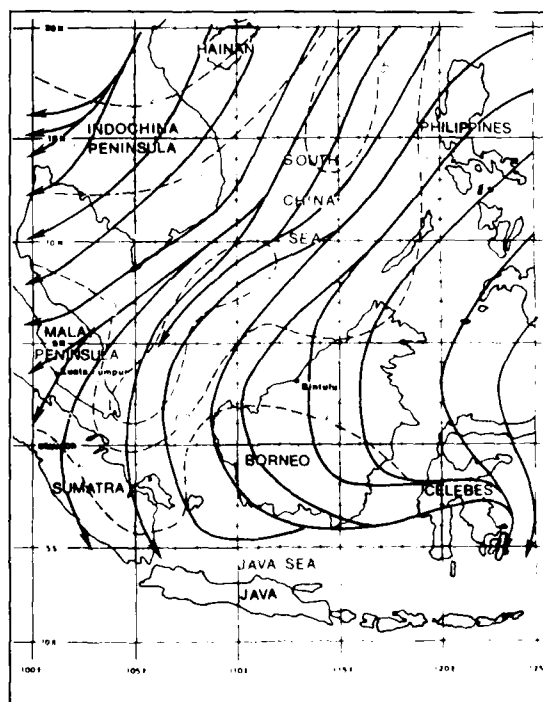 20 N
HAINAN
INDOCHINA
PENINSULA
PHILIPPINES
SOUTH
CHINA
SEA
10 N
MALAY
PENINSULA
Kuala Lumpur
Bintulu
BORNEO
SUMATRA
CELEBES
5 S
JAVA SEA
JAVA
10 S
100 E
105 E
110 E
115 E
120 E